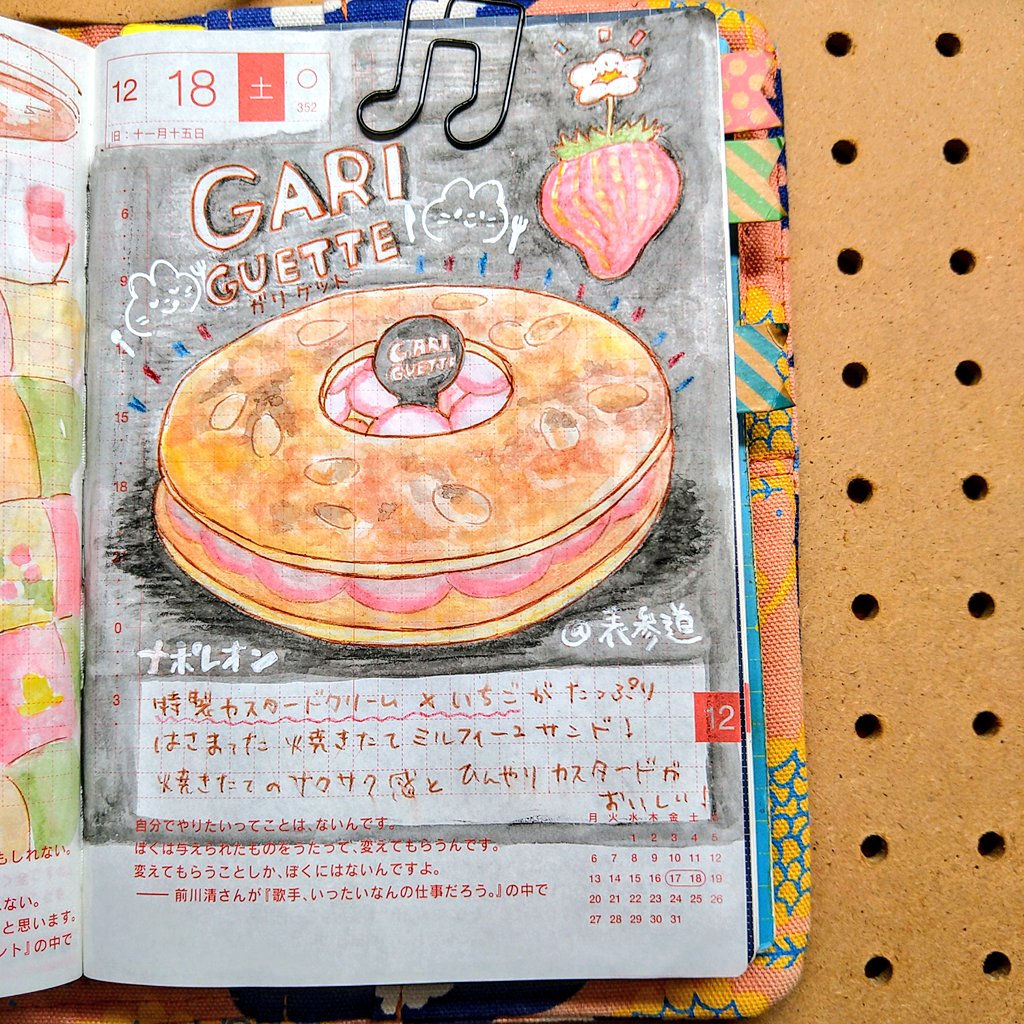 12 18 土
352
旧：十一月十五日
GARI
GUETTE
ガリゲット
6
9
12
GARI
GUETTE
15
18
0
@表参道
ナポレオン
3
特製カスタードクリーム × いちごがたっぷり
はさまった 焼きたてミルフィーユサンド!
焼きたてのサクサク感と ひんやりカスタードが
おいしい!
12
自分でやりたいってことは、ないんです。
ぼくは与えられたものをうたって、変えてもらうんです。
変えてもらうことしか、ぼくにはないんですよ。
—— 前川清さんが『歌手、いったいなんの仕事だろう。』の中で
月 火 水 木 金 土
1 2 3 4 5
6 7 8 9 10 11 12
13 14 15 16 17 18 19
20 21 22 23 24 25 26
27 28 29 30 31
もしれない。
ない。
と思います。
ント』の中で